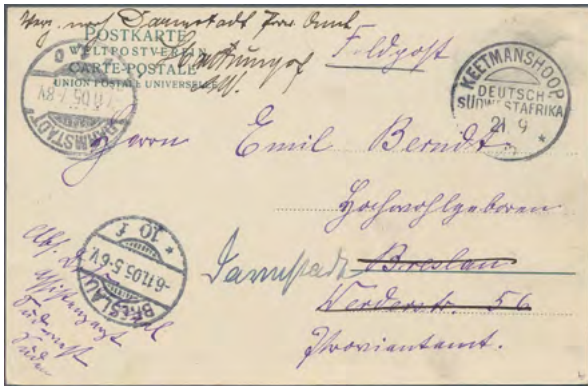 Verz. nach Darmstadt Prov. Amt
POSTKARTE
WELTPOSTVEREIN
CARTE-POSTALE
UNION POSTALE UNIVERSELLE
Feldpost
KEETMANSHOOP
DEUTSCH-
SÜDWESTAFRIKA
21.9
DARMSTADT
Herrn Emil Berndt
Hochwohlgeboren
Darmstadt Breslau
Werderstr. 56
Proviantamt.
BRESLAU
* 10 f
-6.11.05.5-6V.
Abs.
Assistenzarzt